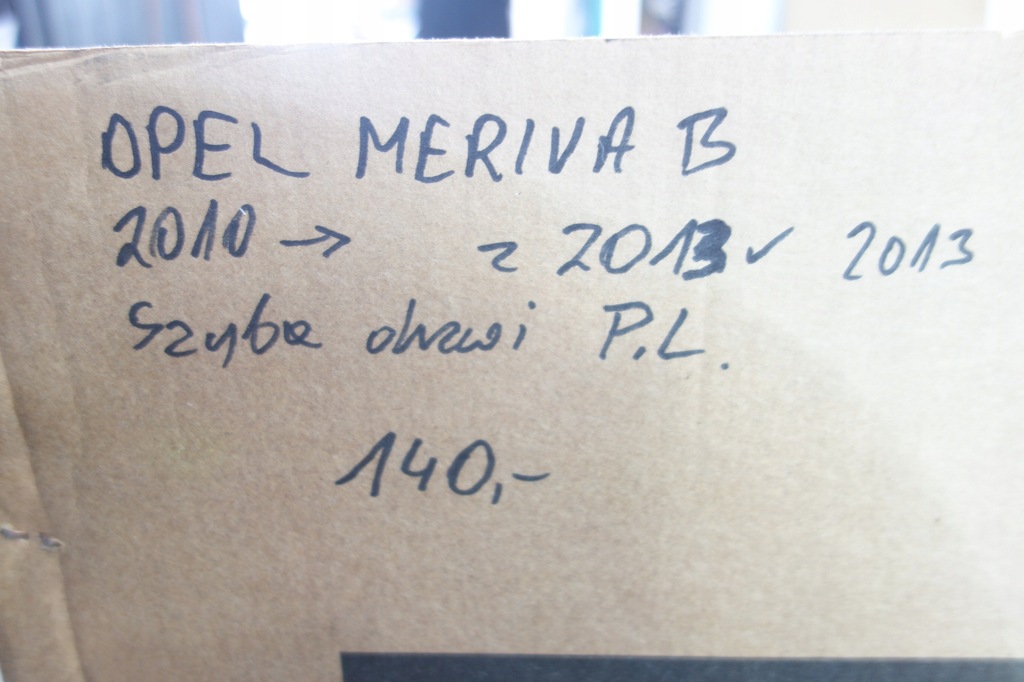 OPEL MERIVA B
2010 → z 2013 ✓ 2013
Szyba drzwi P.L.
140,-